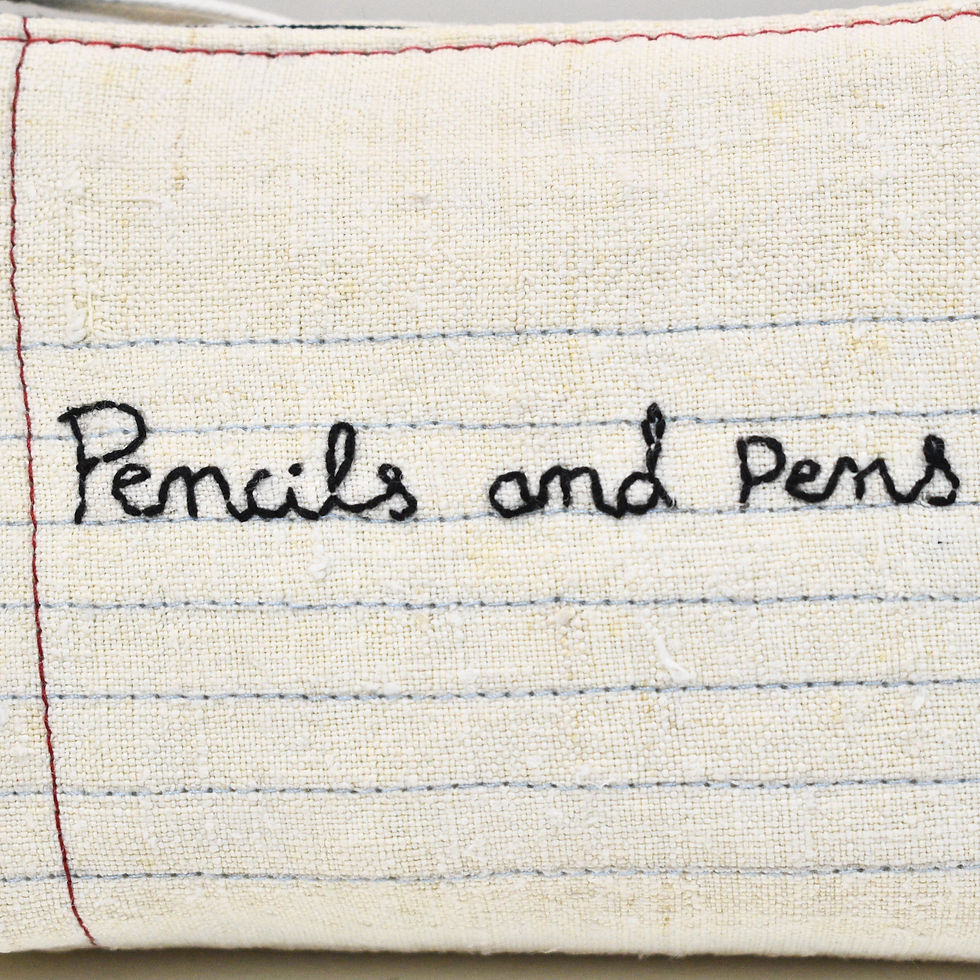 Pencils and pens